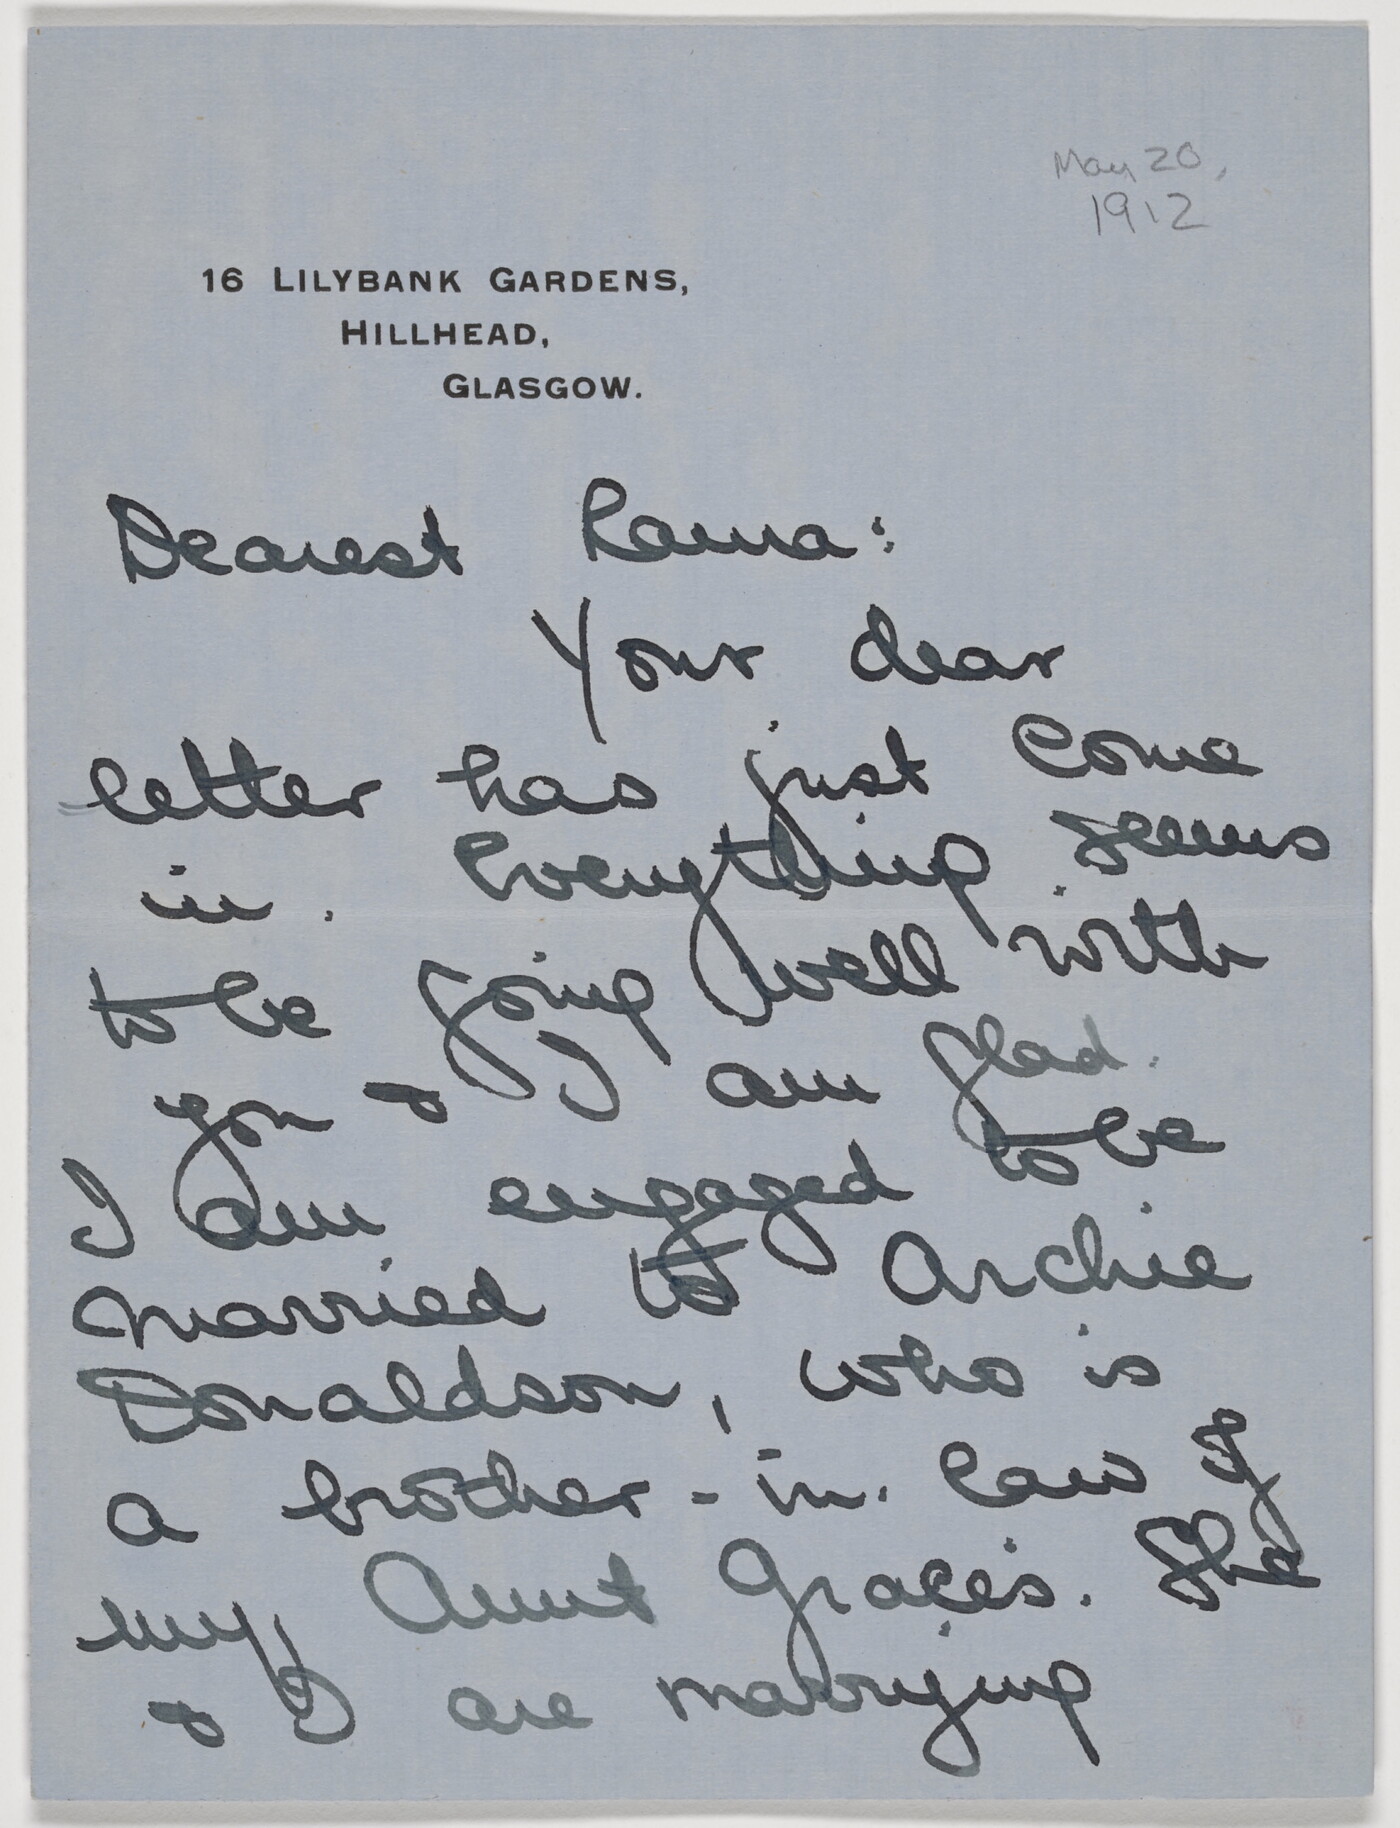 May 20,
1912
16 LILYBANK GARDENS,
HILLHEAD,
GLASGOW.
Dearest Rama:
Your dear
letter has just come
in. Everything seems
to be going well with
you & I am glad.
I am engaged to be
married to Archie
Donaldson, who is
a brother-in-law of
my Aunt Gracie's. She
& I are marrying